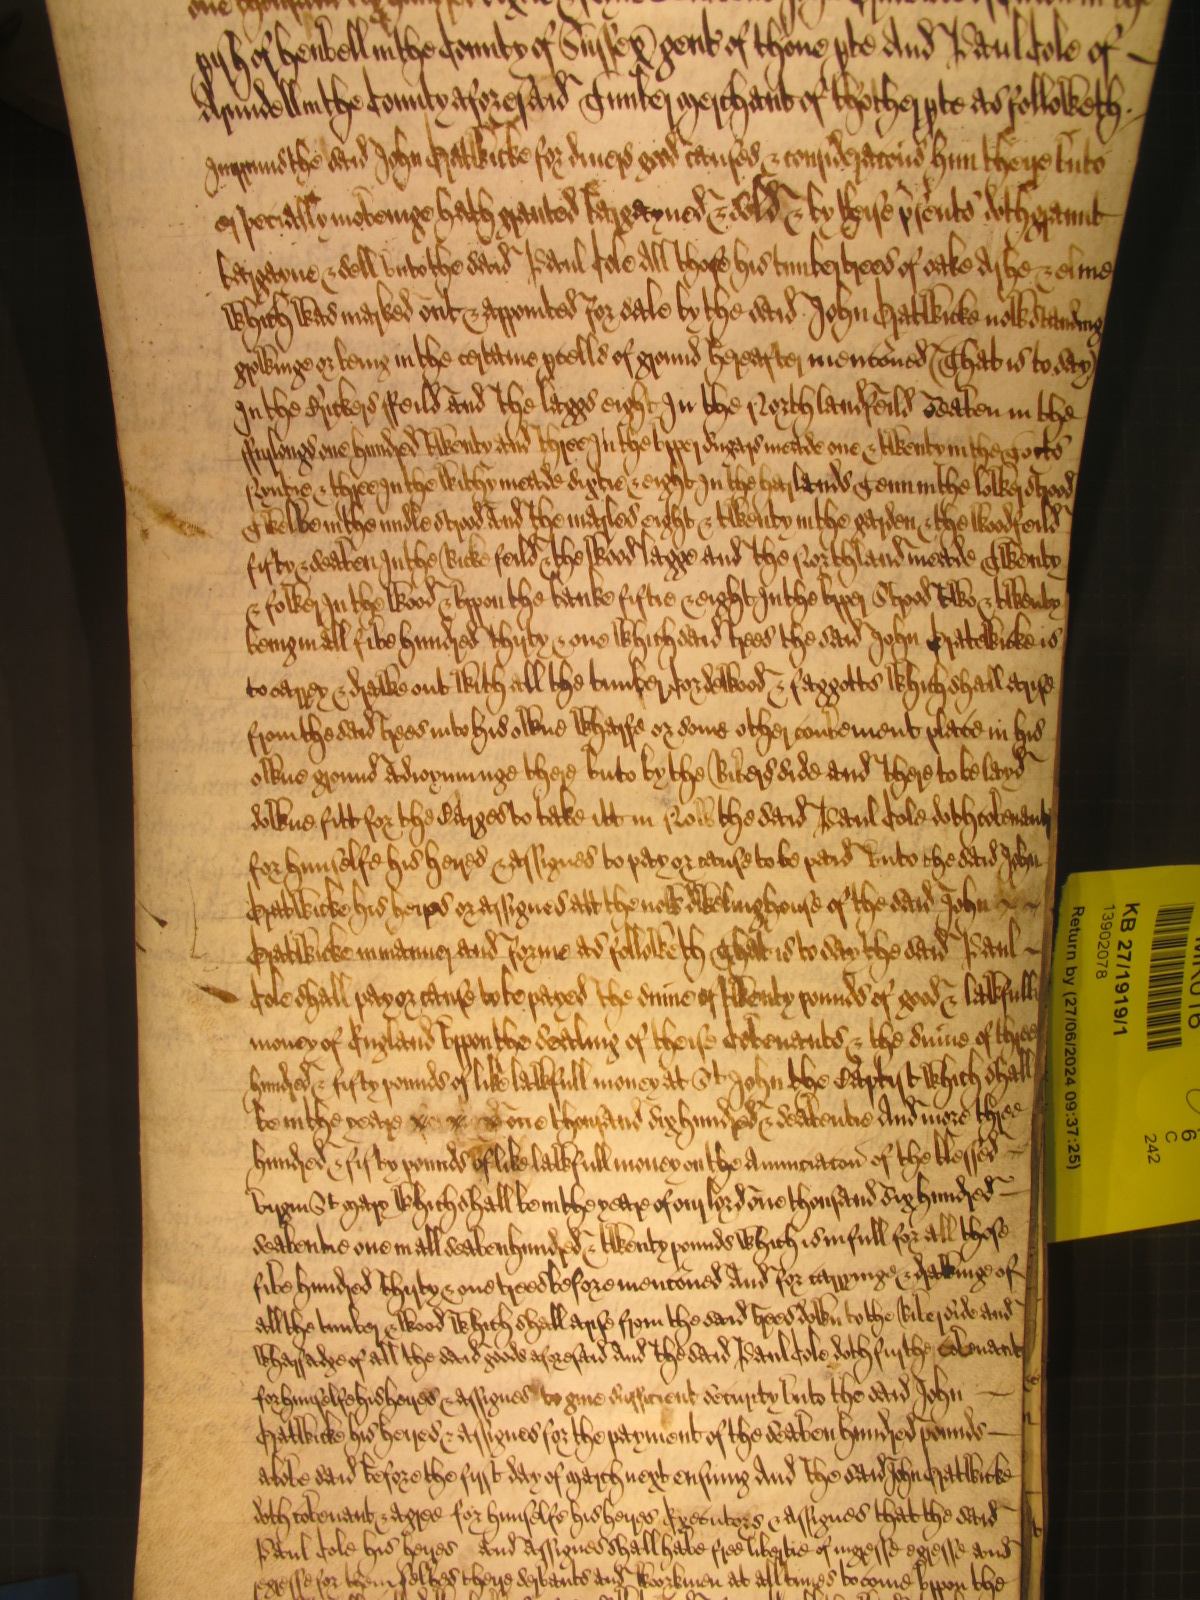 pish of Henfell in the County of Sussex gent of thone pte And Paul Cole of
Arundell in the County aforesaid Timber merchant of thother pte as followeth.
Imprimis the said John Gatwicke for divers good causes & consideracons him there unto
especially moveinge hath granted bargayned & sold & by theise psents doth grannt
bargayne & sell unto the said Paul Cole All those his timber trees of oake Ashe & elme
which was marked out & appointed for sale by the said John Gatwicke now standing
growinge or being in the certaine pcells of ground hereafter mencōned (That is to say)
In the Rickers ffeild and the laggs eight In the Northlandfeild seaven in the
ffurlongs one hundred twenty and three In the upper sugars meade one & twenty in the
& three In the withy meade sixtie & eight In the harlands Tenn in the lower strood
Twelve in the midle strood and the marles eight & twenty in the garden & the woodfeild
fifty & seaven In the Wicke feild & the wood lagge and the Northland meade Twenty
& fower In the Wood & uppon the banke fiftie & eight In the upper Strood two & twenty
being in all five hundred thirty & one which said trees the said John Gatewicke is
to carry & drawe out with all the timber Cordwood & faggotts which shall arise
from the said trees into his owne wharfe or some other convenient place in his
owne ground Adioyninge there unto by the Rivers side and there to be layd
downe fitt for the Barges to take itt in Now the said Paul Cole doth covenant
for himselfe his heires & assignes to pay or cause to be paid unto the said John
Gatwicke his heires or assignes att the now dwelling house of the said John
Gatwicke in manner and forme as followeth That is to say the said Paul
Cole shall pay or cause to be payed the sume of twenty pounds of good & lawfull
money of England uppon the sealing of theise Covenants & the sume of three
hundred & fifty pounds of like lawfull money at St John the Baptist which shall
be in the yeare one thousand six hundred & seaventie And more three
hundred & fifty pounds of like lawfull money on the Annunciacon of the blessed
virgin St Mary which shall be in the yeare of our lord one thousand six hundred
seaventie one in all seaven hundred & twenty pounds which is in full for all those
five hundred thirty & one trees before mencōned And for carryinge & drawinge of
all the timber & wood which shall arise from the said trees down to the River side and
wharfadge of all the said goods aforesaid And the said Paul Cole doth further Covenant
for himselfe his heires & assignes to give sufficient security unto the said John
Gatwicke his heires & assignes for the payment of the seaven hundred pounds
above said before the first day of March next ensuing And the said John Gatwicke
doth covenant & agree for himselfe his heires Executors & assignes that the said
Paul Cole his heires and Assignes shall have free libertie of ingresse egresse and
regresse for them selves there servants and workmen at all times to come uppon the
KB 27/1919/1
13902078
Return by (27/06/2024 09:37:25)
6
C
242